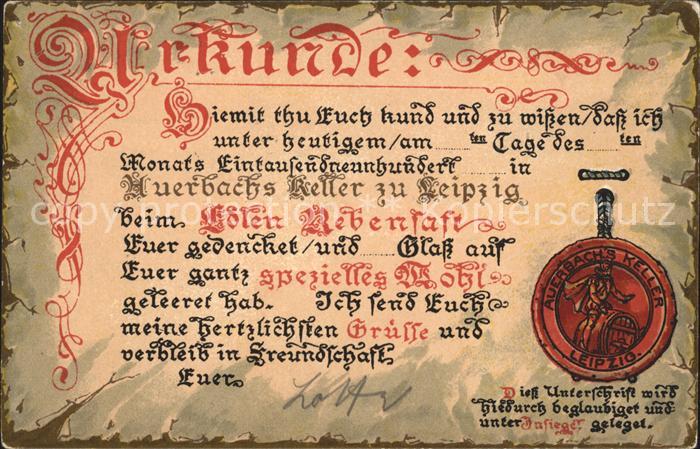 Urkunde:
Hiemit thu Euch kund und zu wißen/daß ich
unter heutigem/am ......ten Tage des ......ten
Monats Eintausendneunhundert ...... in
Auerbachs Keller zu Leipzig
beim Edlen Rebensaft
Euer gedencket/und ...... Glaß auf
Euer gantz spezielles Wohl
geleeret hab. Ich send Euch
meine hertzlichsten Grüsse und
verbleib in Freundschaft
Euer
Lotte
AUERBACH'S KELLER
LEIPZIG.
Dieß Unterschrift wird
hiedurch beglaubiget und
unter Insiegel geleget.
copyright protection ** Kohlerschutz